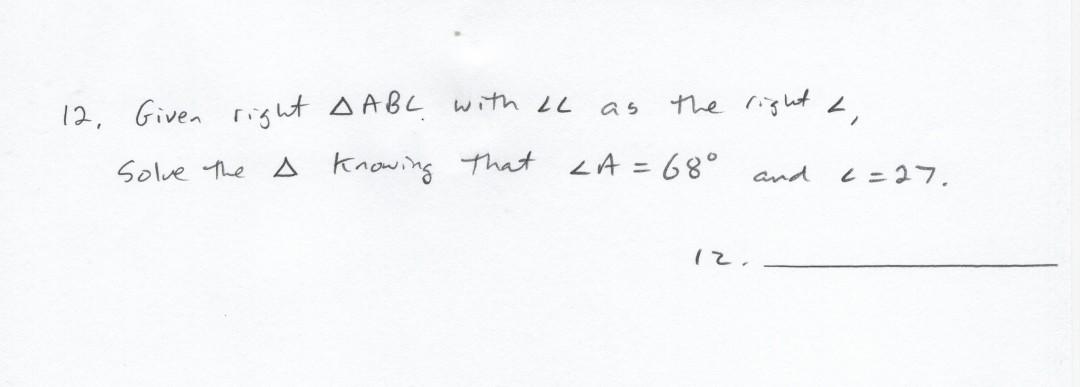 12. Given right △ABC with ∠C as the right ∠,
Solve the △ knowing that ∠A = 68° and c = 27.
12. ____________